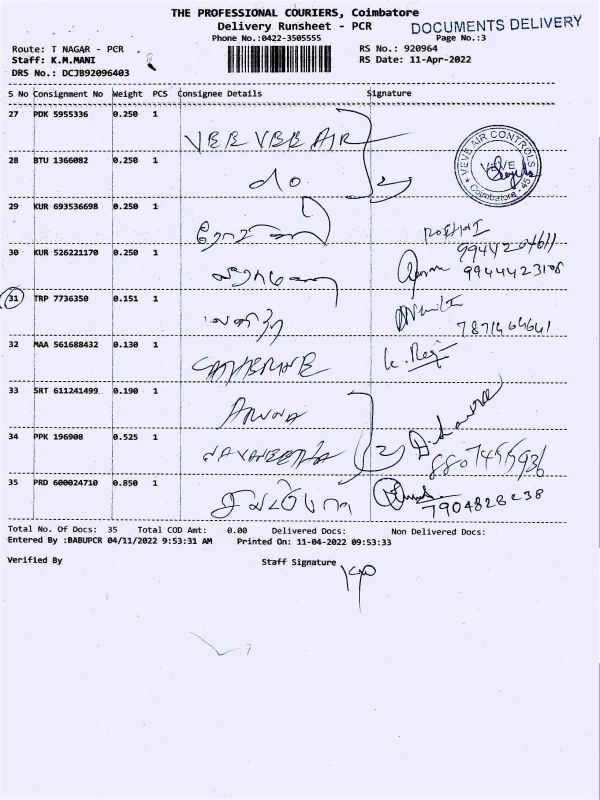 THE PROFESSIONAL COURIERS, Coimbatore
Delivery Runsheet - PCR
DOCUMENTS DELIVERY
Phone No.:0422-3505555
Page No.:3
Route: T NAGAR - PCR
RS No.: 920964
Staff: K.M.MANI
RS Date: 11-Apr-2022
DRS No.: DCJB92096403
S No Consignment No Weight PCS Consignee Details Signature
27 PDK 5955336 0.250 1 VEE VEE AIR
28 BTU 1366082 0.250 1 do
VEVE AIR CONTROLS
VEVE
Coimbatore - 45
29 KUR 693536698 0.250 1
9944204611
30 KUR 526221170 0.250 1 9944423108
31 TRP 7736350 0.151 1
7871464641
32 MAA 561688432 0.130 1 K. Regi
33 SRT 611241499 0.190 1 ARUNA
34 PPK 196908 0.525 1 NAVANEETHA 8807455936
35 PRD 600024710 0.850 1 7904828238
Total No. Of Docs: 35 Total COD Amt: 0.00 Delivered Docs: Non Delivered Docs:
Entered By :BABUPCR 04/11/2022 9:53:31 AM Printed On: 11-04-2022 09:53:33
Verified By Staff Signature